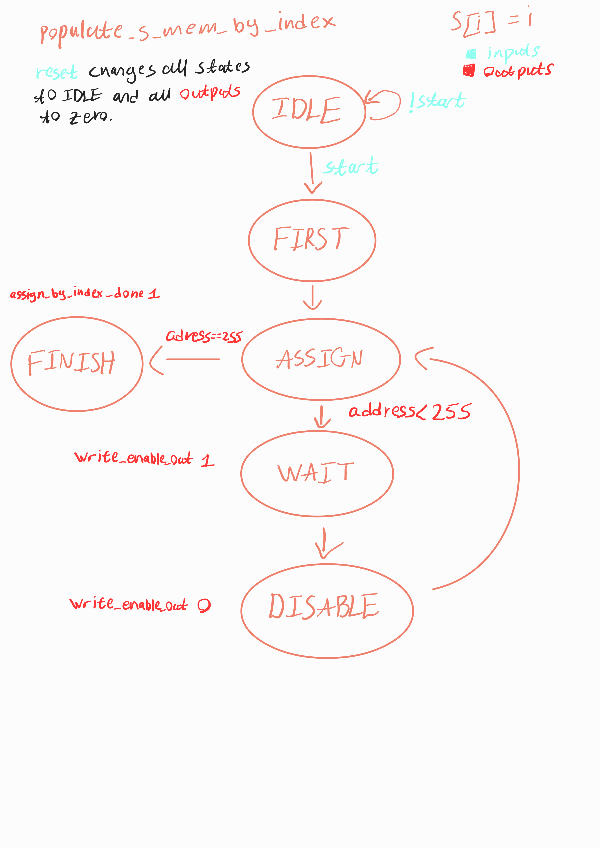 populate_s_mem_by_index
S[i] = i
inputs
outputs
reset changes all states
to IDLE and all outputs
to zero.
IDLE
!start
start
FIRST
assign_by_index_done 1
FINISH
adress==255
ASSIGN
address<255
write_enable_out 1
WAIT
write_enable_out 0
DISABLE